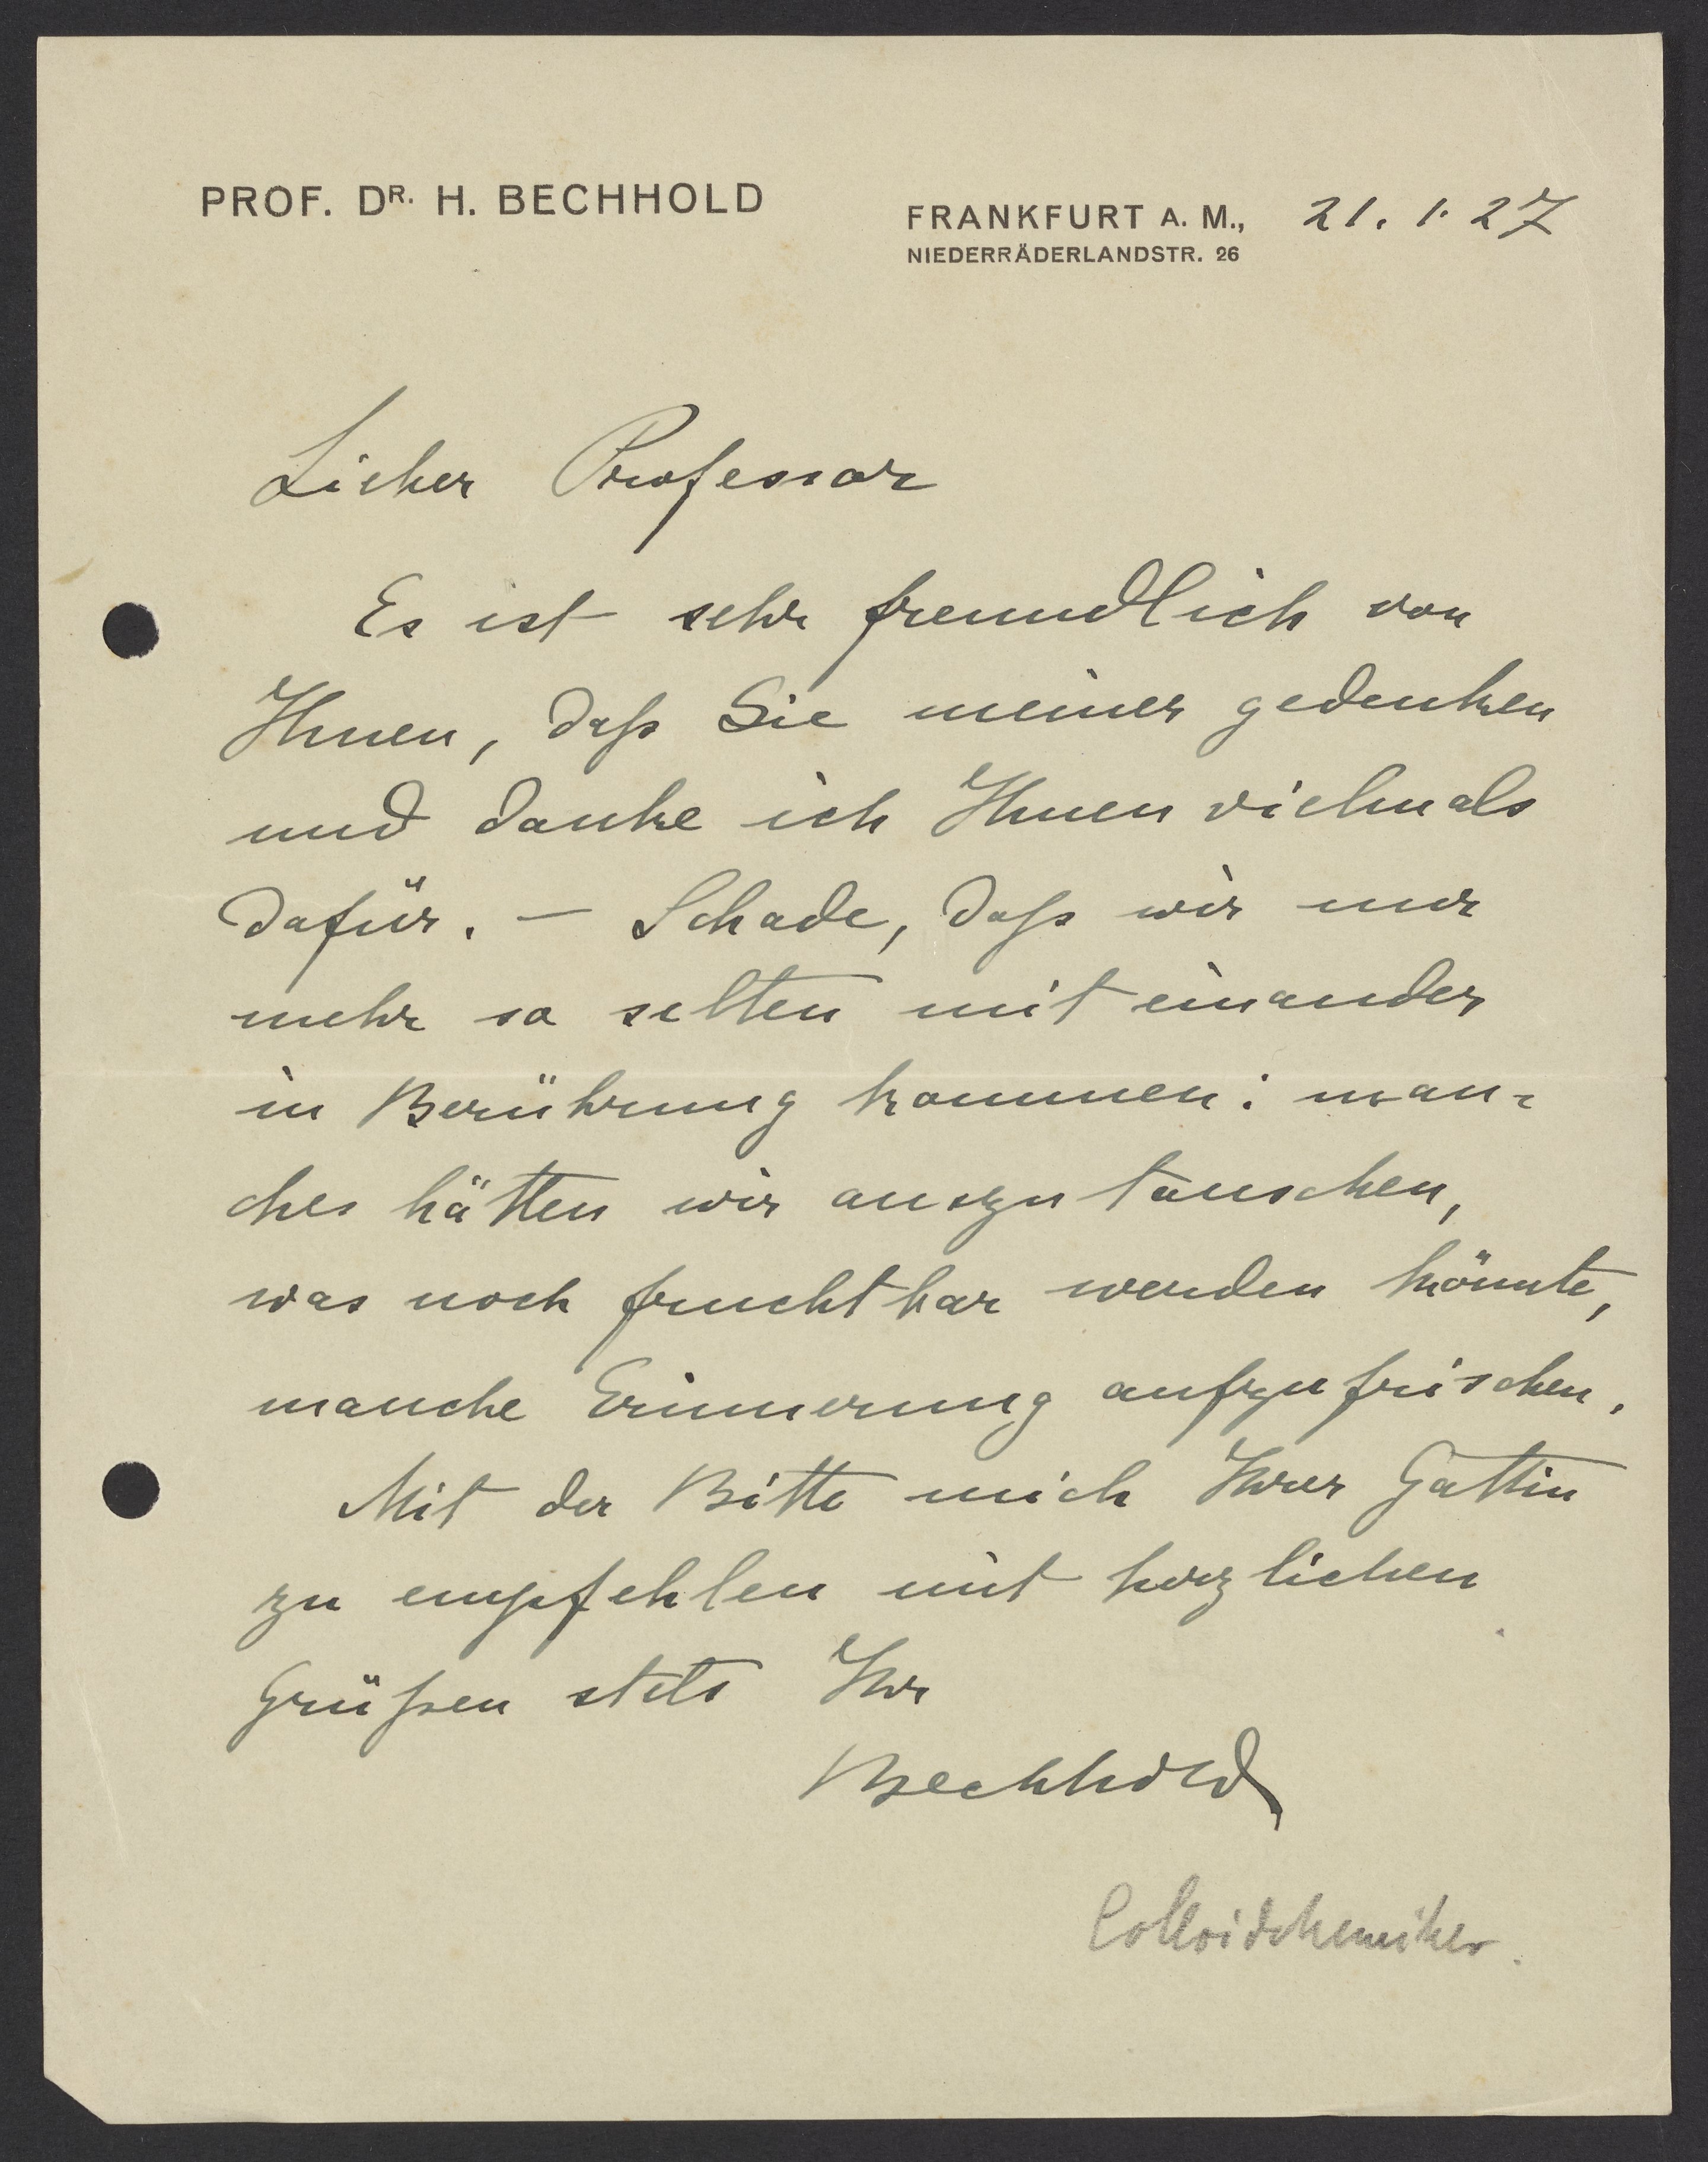 PROF. DR. H. BECHHOLD
FRANKFURT A. M., 21. 1. 27
NIEDERRÄDERLANDSTR. 26
Lieber Professor
Es ist sehr freundlich von
Ihnen, daß Sie meiner gedenken
und danke ich Ihnen vielmals
dafür. – Schade, daß wir nur
mehr so selten mit einander
in Berührung kommen: man-
ches hätten wir auszutauschen,
was noch fruchtbar werden könnte,
manche Erinnerung aufzufrischen.
Mit der Bitte mich Ihrer Gattin
zu empfehlen mit herzlichen
Grüßen stets Ihr
Bechhold
Colloidchemiker.